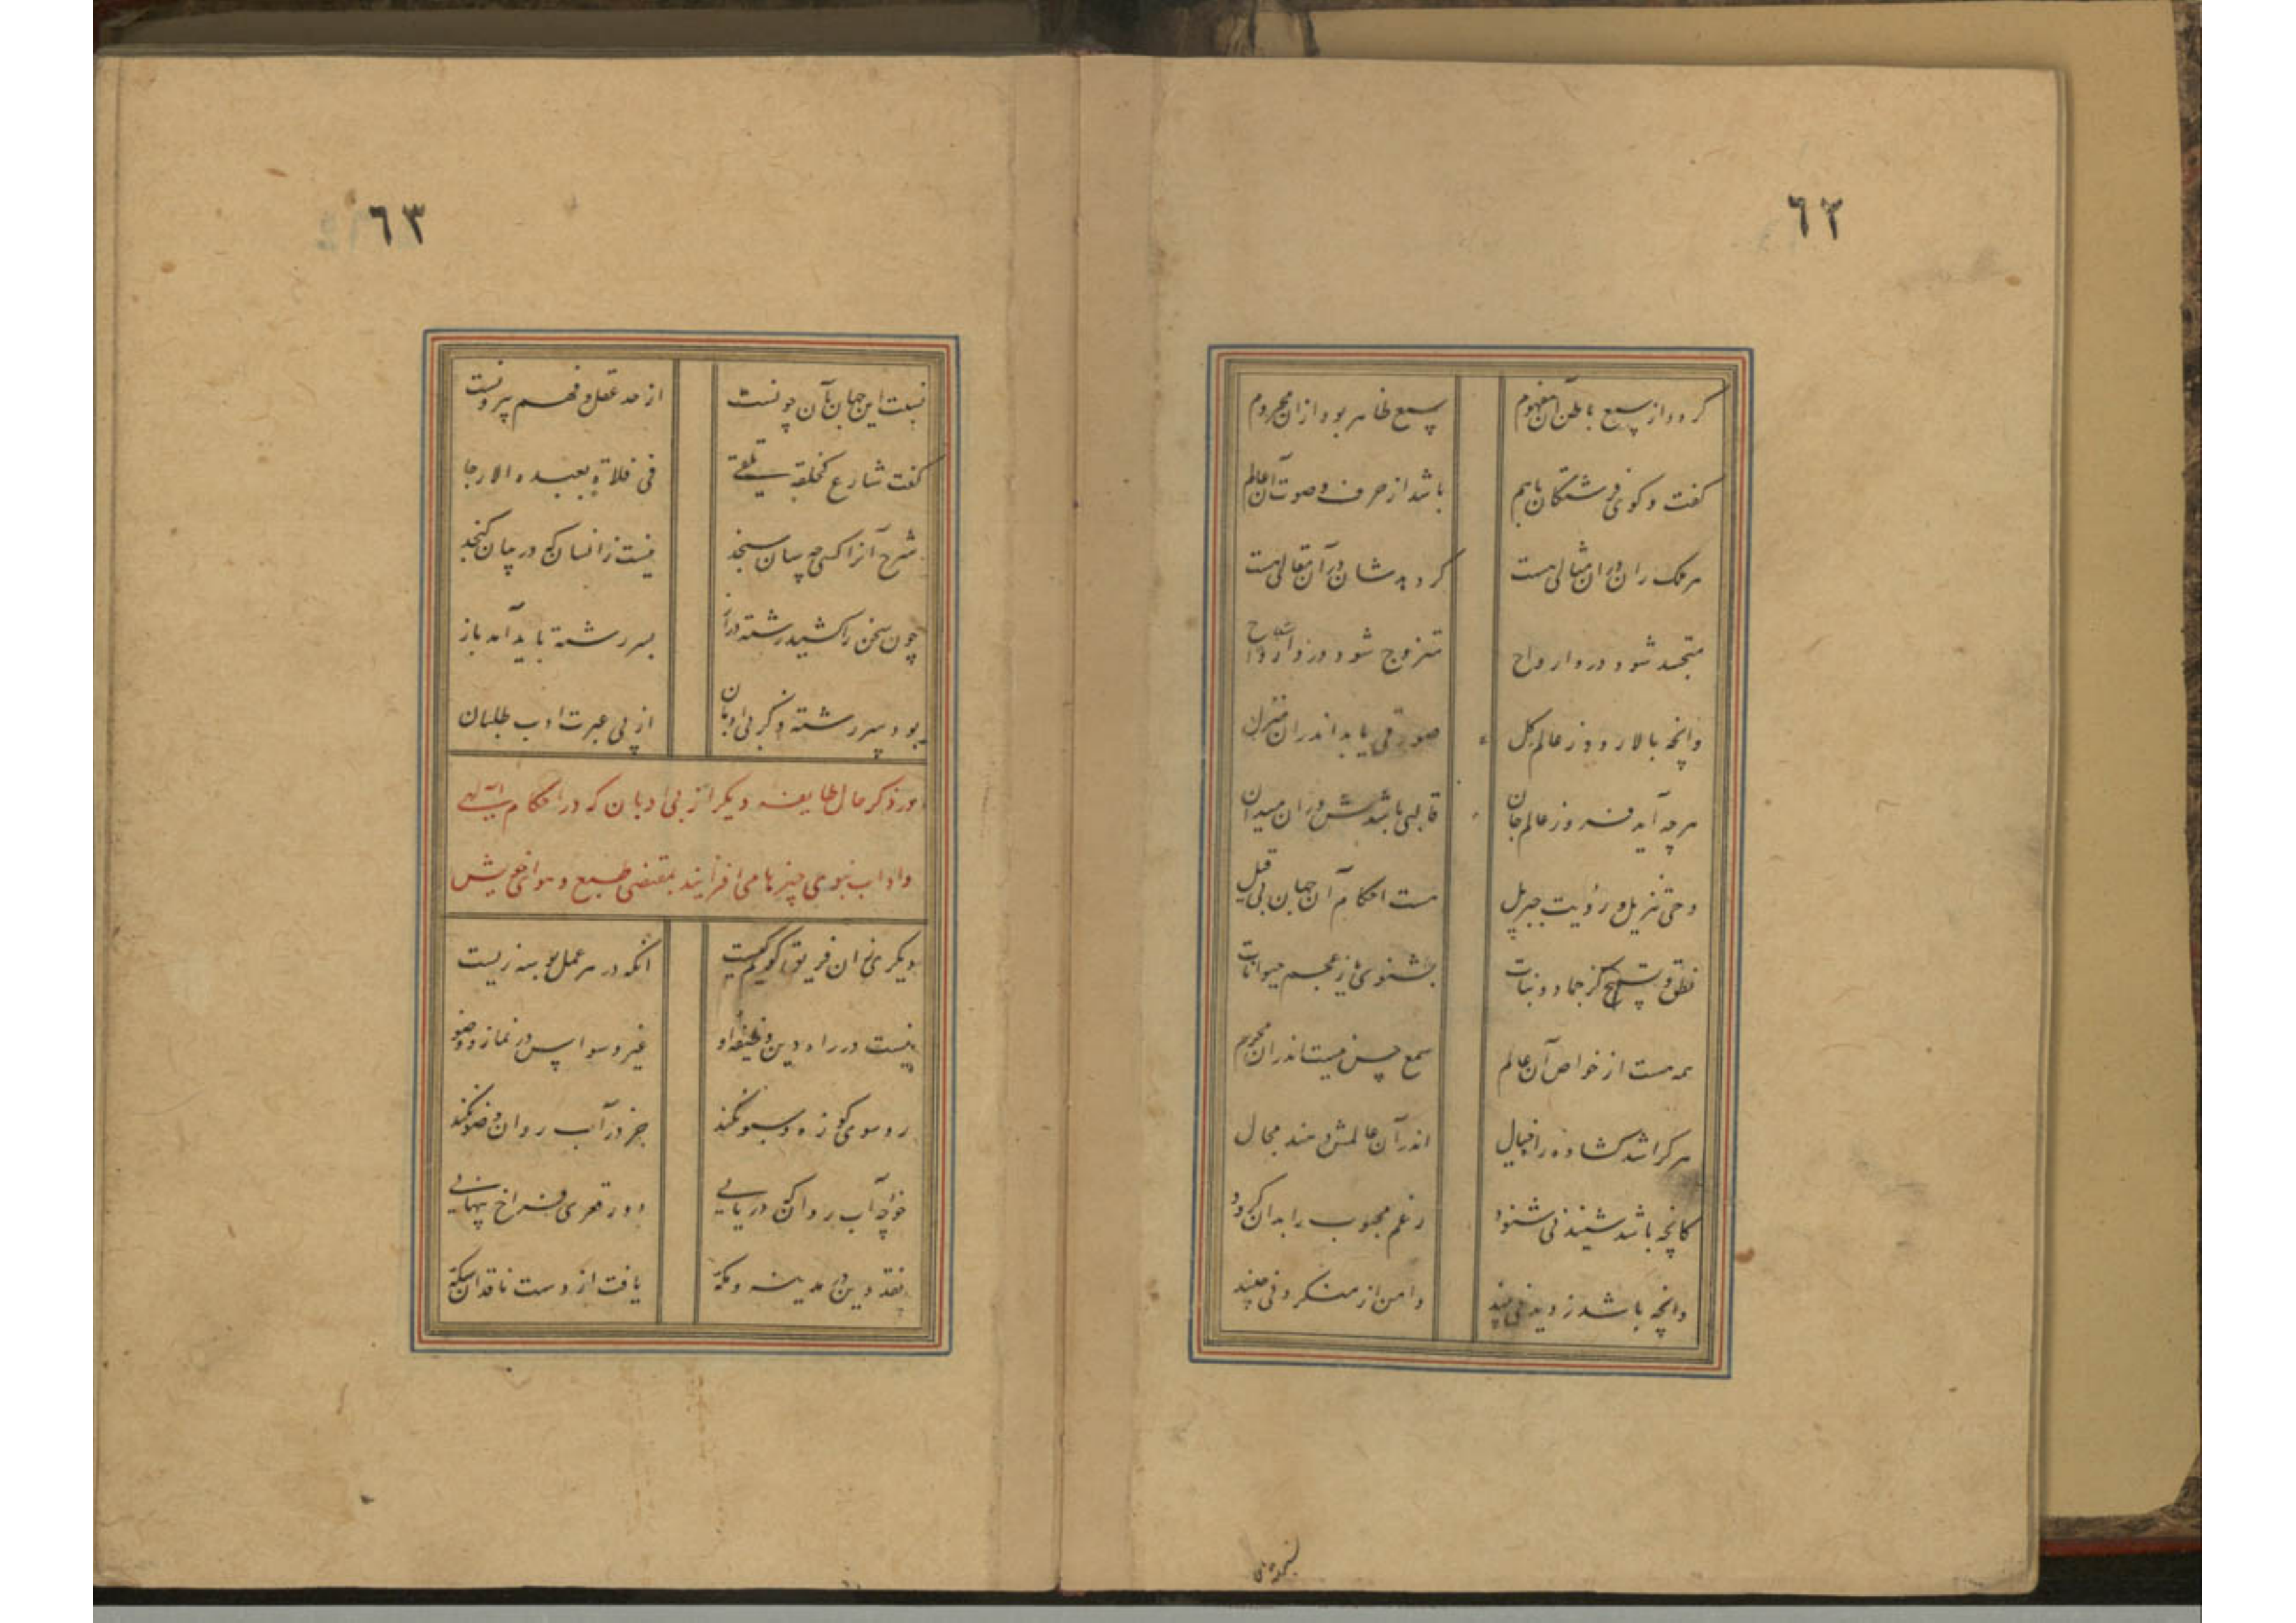 ٦٢
گردد از سمع باطن آن مفهوم
سمع ظاهر بود ازان محروم
گفت و گوی فرشتگان باهم
باشد از حرف و صوت آن عالم
هر ملک را دران مثالی هست
گرد بر شان در آن مقالی هست
متجسد شود درو ارواح
متروح شود درو اشباح
وانچه بالا رود ز عالم گل
صورتی یابد اندران منزل
هرچه آید فرو ز عالم جان
قالبی باشدش دران میدان
وحی تنزیل و رؤیت جبریل
هست احکام آن جهان بی قیل
نطق و تسبیح کز جماد و نبات
بشنوی یا ز عجم حیوانات
همه هست از خواص آن عالم
سمع حس نیست اندران محرم
هر کرا شد گشاده راه خیال
اندر آن عالمش دهند مجال
کانچه باشد شنیدنی شنود
زغم محجوب را بدان گرود
وانچه باشد ز دیدنی بیند
دامن از منکر دنی چیند
نسبت این
٦٣
نسبت این جهان بآن چونست
از حد عقل و فهم بیرونست
گفت شارع کحلقة تلقی
فی فلاة بعیدة الارجا
شرح آنرا کسی چه سان سنجد
نیست زانسان که در بیان گنجد
چون سخن را کشید رشته دراز
بسر رشته باید آمد باز
بود سر رشته ذکر بی ادبان
از پی عبرت ادب طلبان
در ذکر حال طایفه دیگر از بی ادبان که در احکام الهی
و اداب نبوی چیزها می افزایند بمقتضی طبع و هوای خویش
دیگری زان فریق را گویم کیست
انکه در هر عمل بوسوسه زیست
نیست در راه دین وظیفه او
غیر وسواس در نماز و وضو
رو سوی کوزه و سبو نکند
جز در آب روان وضو نکند
خواجه آب روان کن دریایی
دور قعری فراخ پهنایی
نقد دین در مدینه و مکه
یافت از دست ناقدان سکه